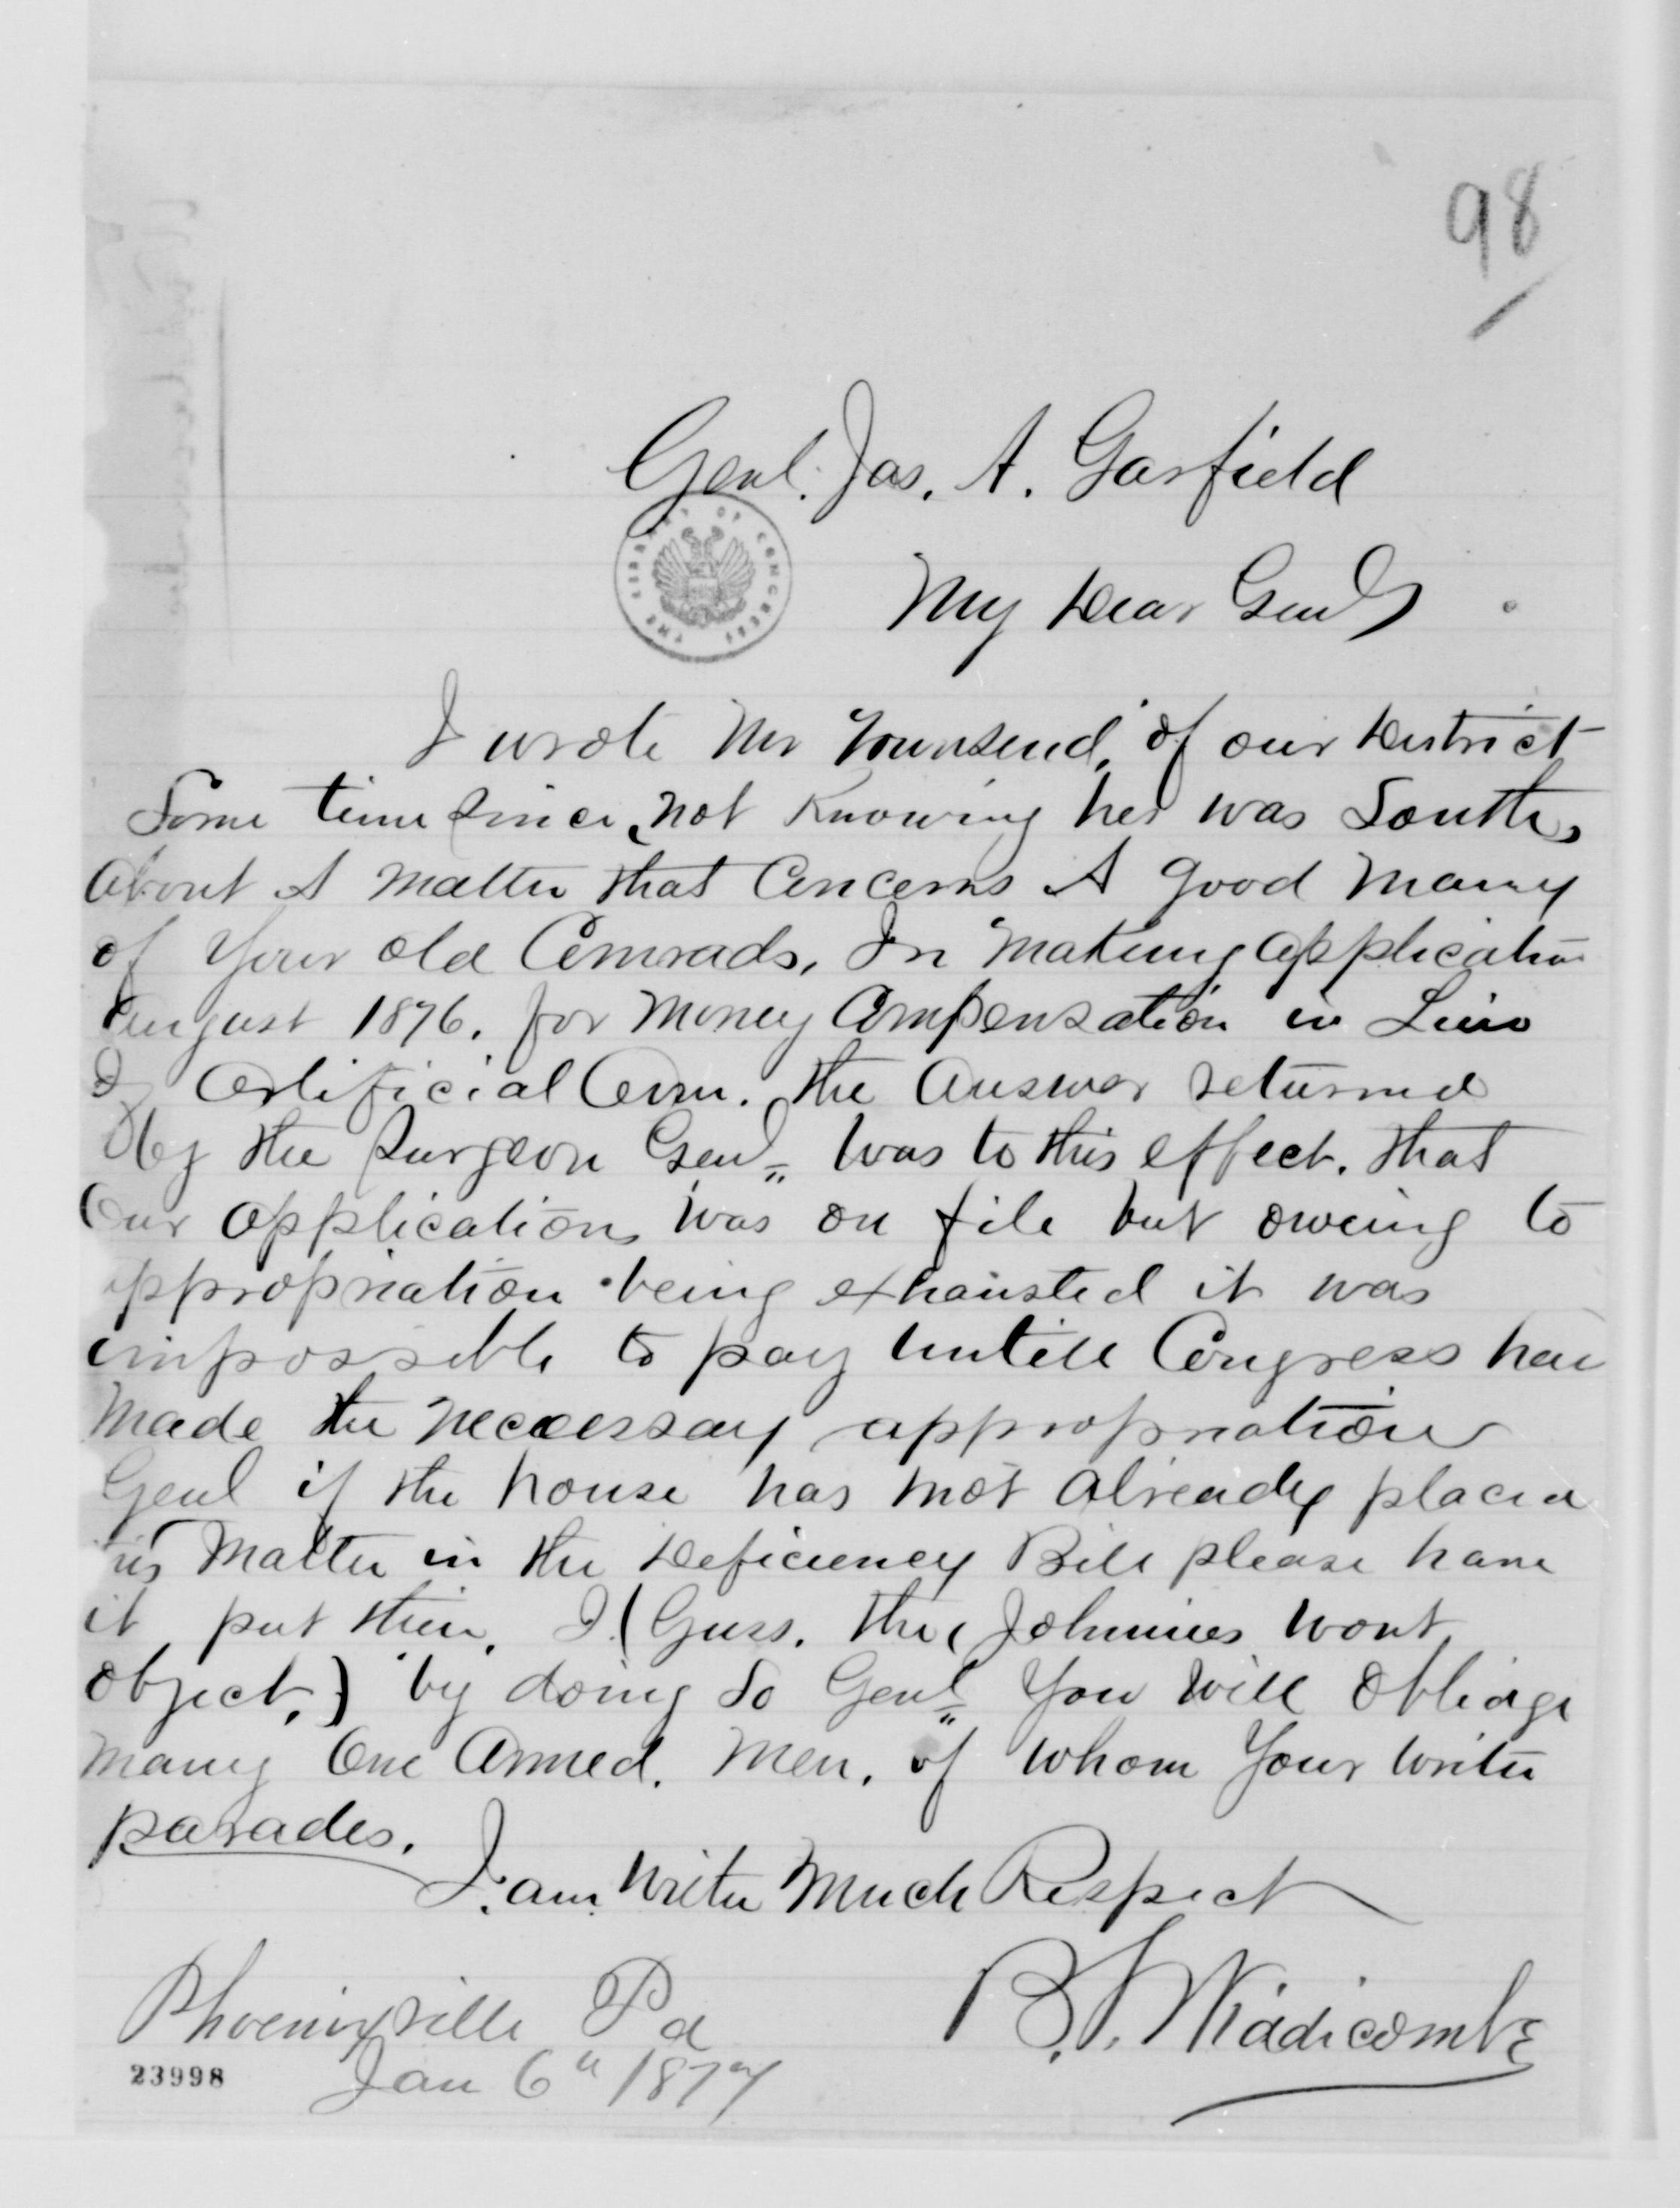 98
Genl. Jas. A. Garfield
THE LIBRARY OF CONGRESS
My Dear Genl
I wrote Mr Townsend, of our District
Some time since, not Knowing he was South,
About A matter that Concerns A good many
of Your old Comrads, In making application
August 1876. for Money Compensation in Lieu
of Artificial Arm. the Answer returned
by the Surgeon Genl. was to this effect. that
Our application was on file but oweing to
appropriation being exhausted it was
impossible to pay untill Congress had
made the neccessary appropriation
Genl if the house has not already placed
this matter in the Deficiency Bill please have
it put thier, I (Guss. the Johnnies wont
object.) by doing So Genl. You will obliage
many One Armed. Men. of whom Your writer
parades.
I am With Much Respect
Phoenixville Pa
Jan 6th 1877
23998